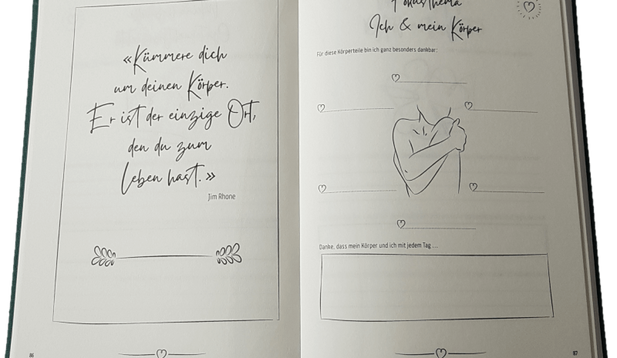 «Kümmere dich
um deinen Körper.
Er ist der einzige Ort,
den du zum
leben hast.»
Jim Rhone
Fokusthema
Ich & mein Körper
Für diese Körperteile bin ich ganz besonders dankbar:
Danke, dass mein Körper und ich mit jedem Tag ...
87